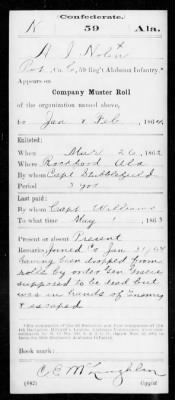 Confederate.
K 59 Ala.
H J Nolin
Pvt, Co. G, 59 Reg't Alabama Infantry.*
Appears on
Company Muster Roll
of the organization named above,
to Jan & Feb, 1864.
Enlisted:
When Mar 26, 1862
Where Rockford Ala
By whom Capt Stubblefield
Period 3 yrs
Last paid:
By whom Capt Williams
To what time May 1, 1863
Present or absent Present
Remarks: Joined Co Jan 31, 64
having been dropped from
rolls by order Gen
supposed to be dead but
was in hands of enemy
& escaped
Book mark:
C E McLaughlin
(642) Copyist